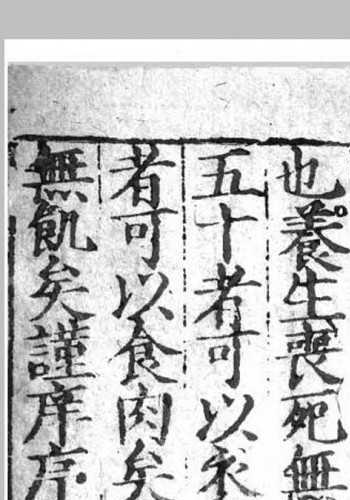 也養生喪死無
五十者可以衣
者可以食肉矣
無飢矣謹庠序